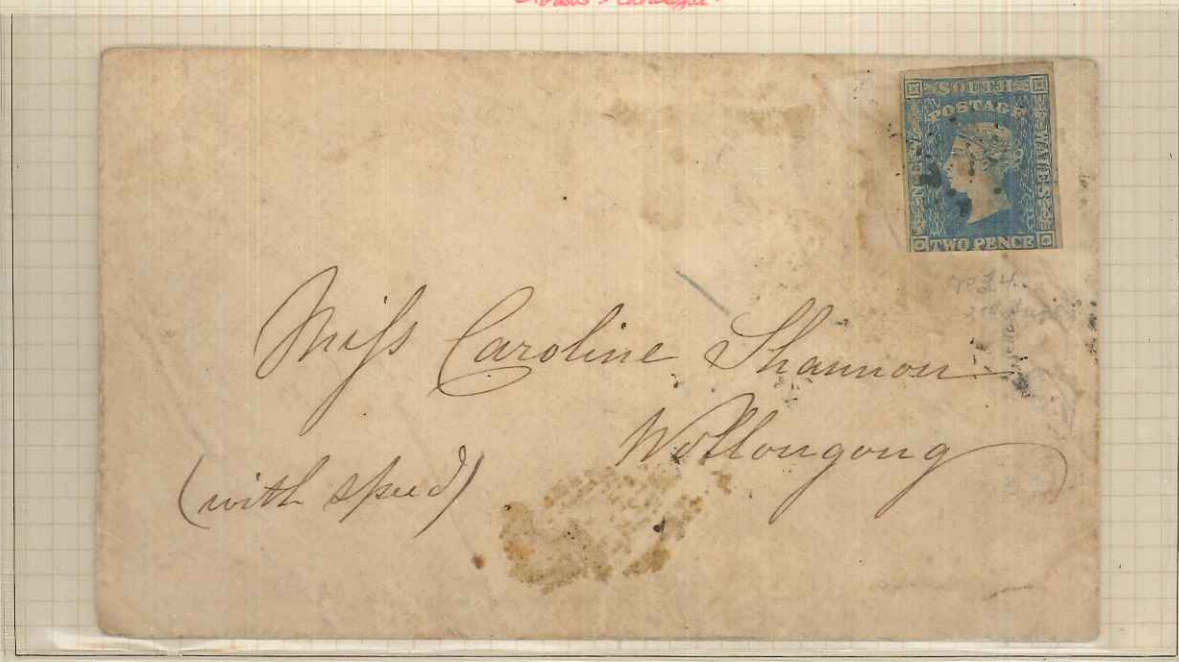 SOUTH
POSTAGE
NEW
WALES
TWO PENCE
No 14.
Miſs Caroline Shannon
Wollongong
(with speed)